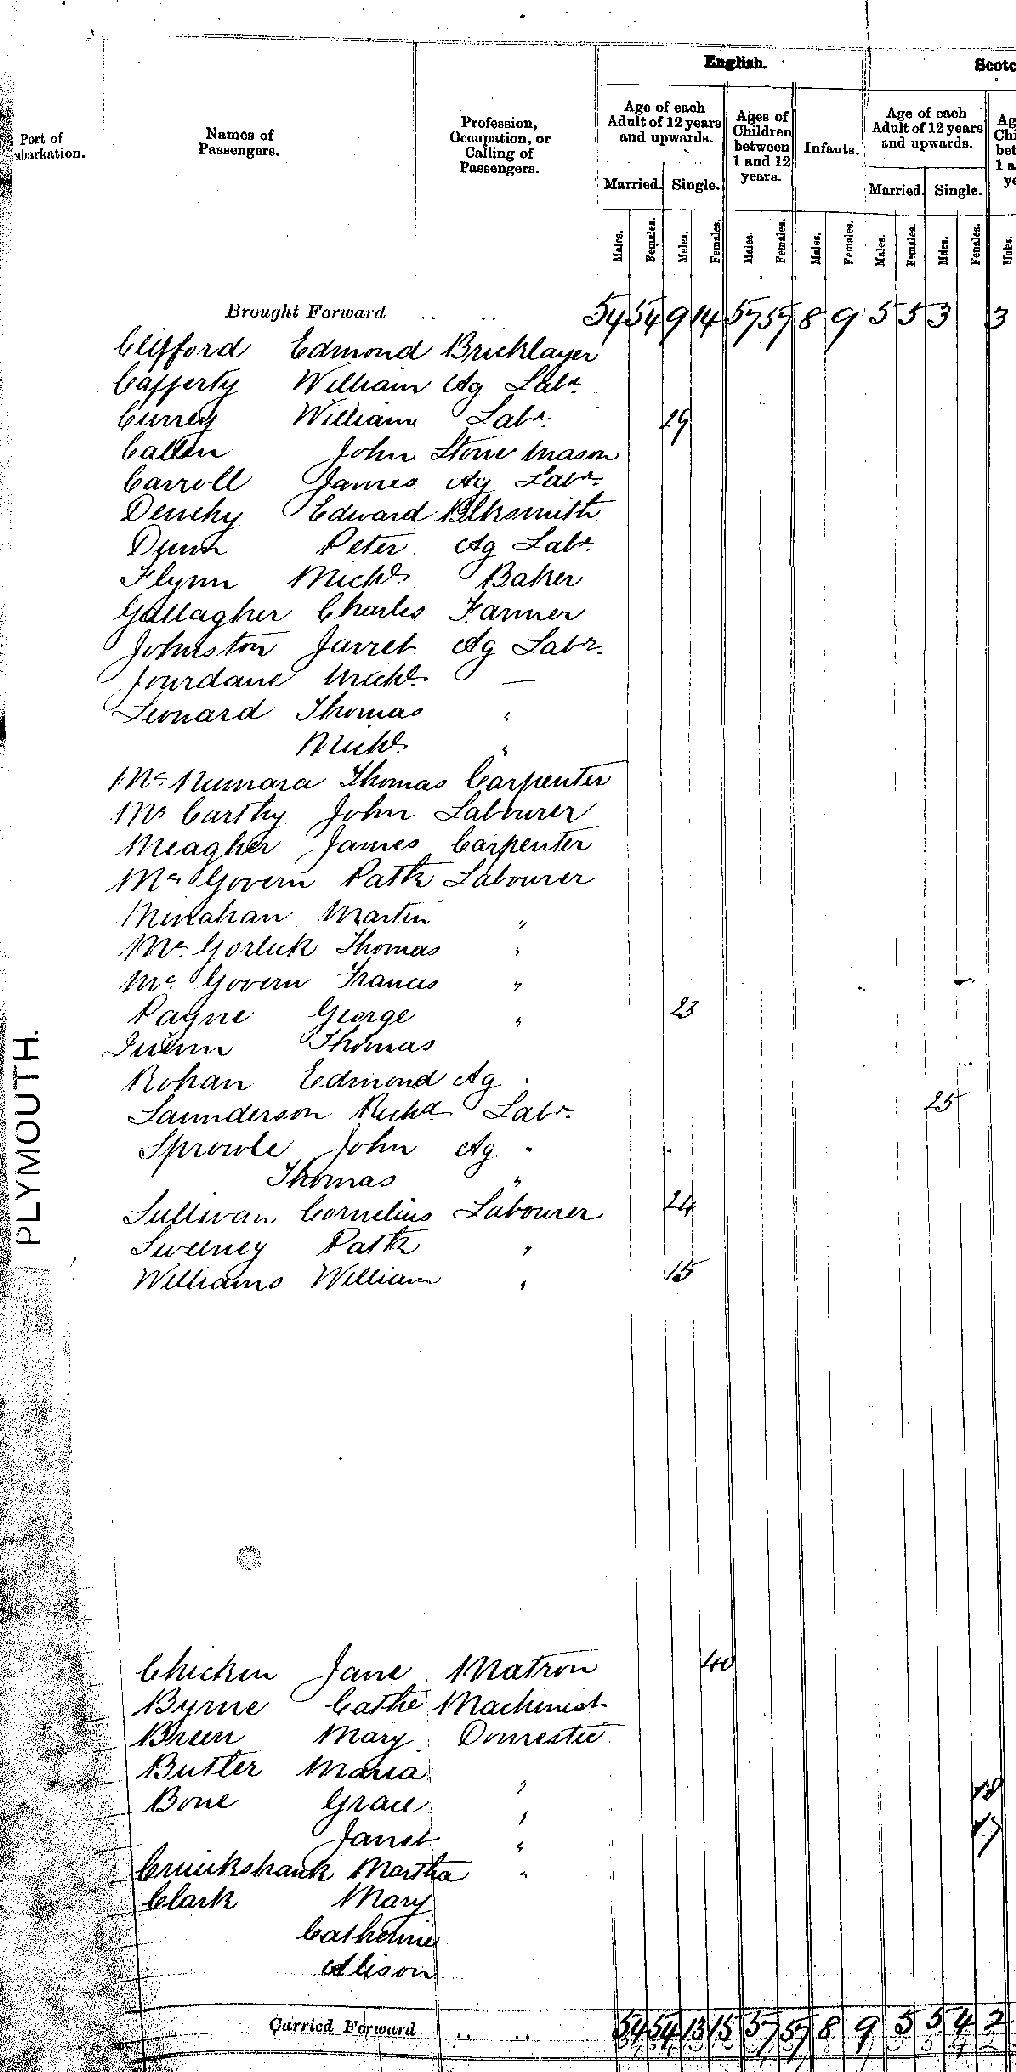 English.
Scotc
Port of
mbarkation.
Names of
Passengers.
Profession,
Occupation, or
Calling of
Passengers.
Age of each
Adult of 12 years
and upwards.
Ages of
Children
between
1 and 12
years.
Infants.
Age of each
Adult of 12 years
and upwards.
Married. Single.
Married. Single.
Males. Females. Males. Females. Males. Females. Males. Females. Males. Females. Males. Females. Males.
Brought Forward .. .. 54 54 9 14 57 57 8 9 5 5 3 3
Clifford Edmond Bricklayer
Cafferty William Ag Labr.
Currey William Labr. 29
Callen John Stone Mason
Carroll James Ag Labr.
Denehy Edward Blksmith
Dunn Peter Ag Labr.
Flynn Michl. Baker
Gallagher Charles Farmer
Johnston Jarret Ag Labr.
Jourdane Michl. —
Leonard Thomas "
Michl. "
Mc. Numara Thomas Carpenter
Mc Carthy John Labourer
Meagher James Carpenter
Mc Govern Patk Labourer
Minahan Martin "
Mc. Thomas "
Mc Govern Francis "
Payne George " 23
Thomas
Rohan Edmond Ag "
Saunderson Richd. Labr. 25
Sproule John Ag "
Thomas "
Sullivan Cornelius Labourer 24
Sweeney Patk "
Williams William " 15
PLYMOUTH.
Chicken Jane Matron 40
Byrne Cathe Machinist
Breen Mary Domestic
Butler Maria "
Bone Grace " 18
Janet " 17
Cruickshank Martha "
Clark Mary
Catherine
Alison
Carried Forward .. .. 54 54 13 15 57 57 8 9 5 5 4 2